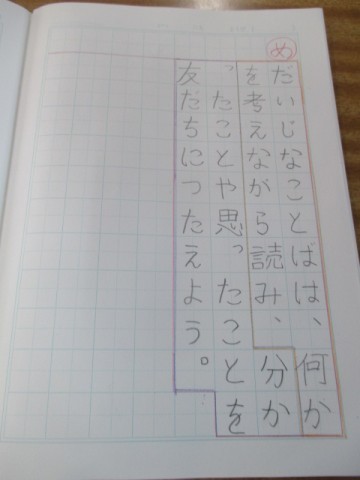 め
だいじなことばは、何か
を考えながら読み、分か
ったことや思ったことを
友だちにつたえよう。